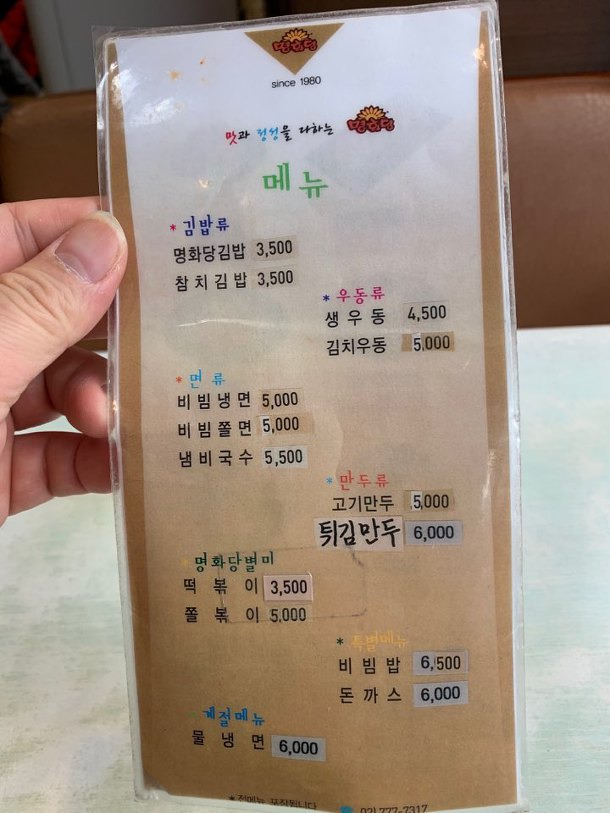 명화당
since 1980
맛과 정성을 다하는 명화당
메뉴
* 김밥류
명화당김밥 3,500
참치김밥 3,500
* 우동류
생우동 4,500
김치우동 5,000
* 면류
비빔냉면 5,000
비빔쫄면 5,000
냄비국수 5,500
* 만두류
고기만두 5,000
튀김만두 6,000
명화당별미
떡볶이 3,500
쫄볶이 5,000
* 특별메뉴
비빔밥 6,500
돈까스 6,000
계절메뉴
물냉면 6,000
* 전메뉴 포장됩니다 ☎ 02) 777-7317